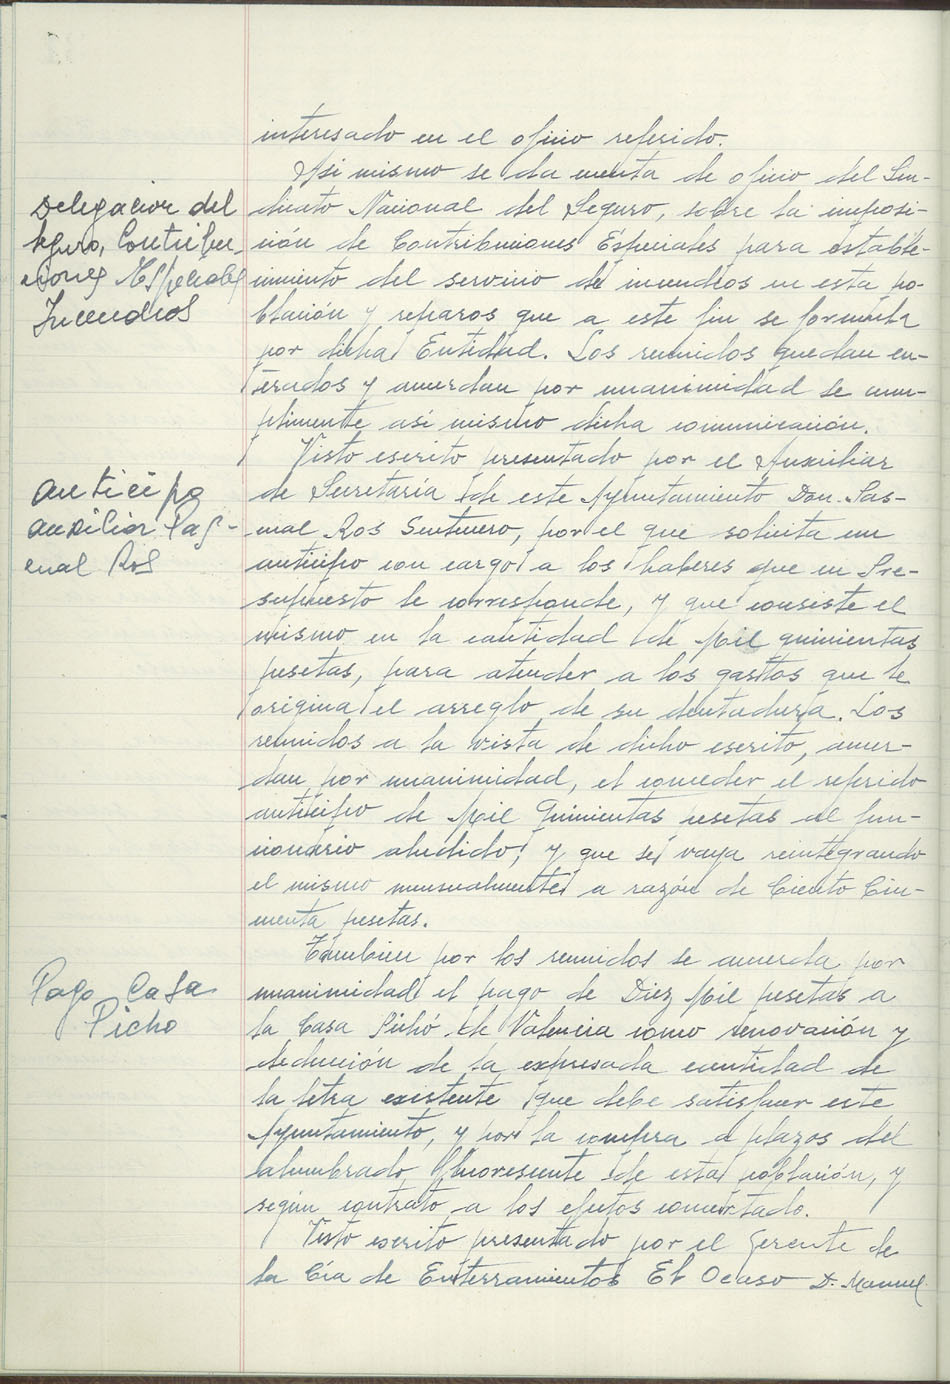 interesado en el oficio referido.
Asi mismo se da cuenta de oficio del Sin-
Delegacion del
dicato Nacional del Seguro, sobre la imposi-
Seguro, Contribu-
ción de Contribuciones Especiales para estable-
ciones Especiales
cimiento del servicio de incendios en esta po-
Incendios
blación y reparos que a este fin se formula
por dicha Entidad. Los reunidos quedan en-
terados y acuerdan por unanimidad se cum-
plimente asi mismo dicha comunicación.
Visto escrito presentado por el Auxiliar
Anticipo
de Secretaría de este Ayuntamiento Don Pas-
auxiliar Pas-
cual Ros Sentinero, por el que solicita un
cual Ros
anticipo con cargo a los haberes que en Pre-
supuesto le corresponde, y que consiste el
mismo en la cantidad de Mil quinientas
pesetas, para atender a los gastos que le
origina el arreglo de su dentadura. Los
reunidos a la vista de dicho escrito, acuer-
dan por unanimidad, el conceder el referido
anticipo de Mil Quinientas pesetas al fun-
cionario aludido, y que se vaya reintegrando
el mismo mensualmente a razón de Ciento Cin-
cuenta pesetas.
Tambien por los reunidos se acuerda por
Pago Casa
unanimidad el pago de Diez Mil pesetas a
Picho
la Casa Pichó de Valencia como renovación y
deducción de la expresada cantidad de
la letra existente que debe satisfacer este
Ayuntamiento, y por la compra a plazos del
alumbrado fluorescente de esta población, y
según contrato a los efectos concertado.
Visto escrito presentado por el Gerente de
la Cía de Enterramientos El Ocaso D. Manuel